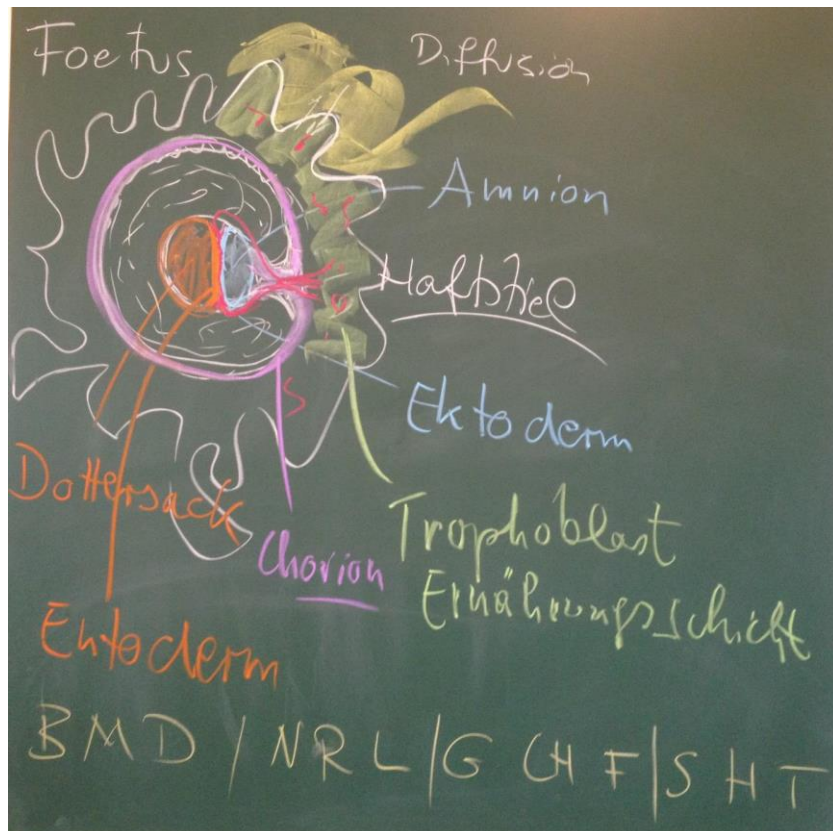 Foetus
Diffusion
Amnion
Haftstiel
Ektoderm
Dottersack
Trophoblast
Ernährungsschicht
Chorion
Entoderm
BMD / NRL / G CH F / S H T